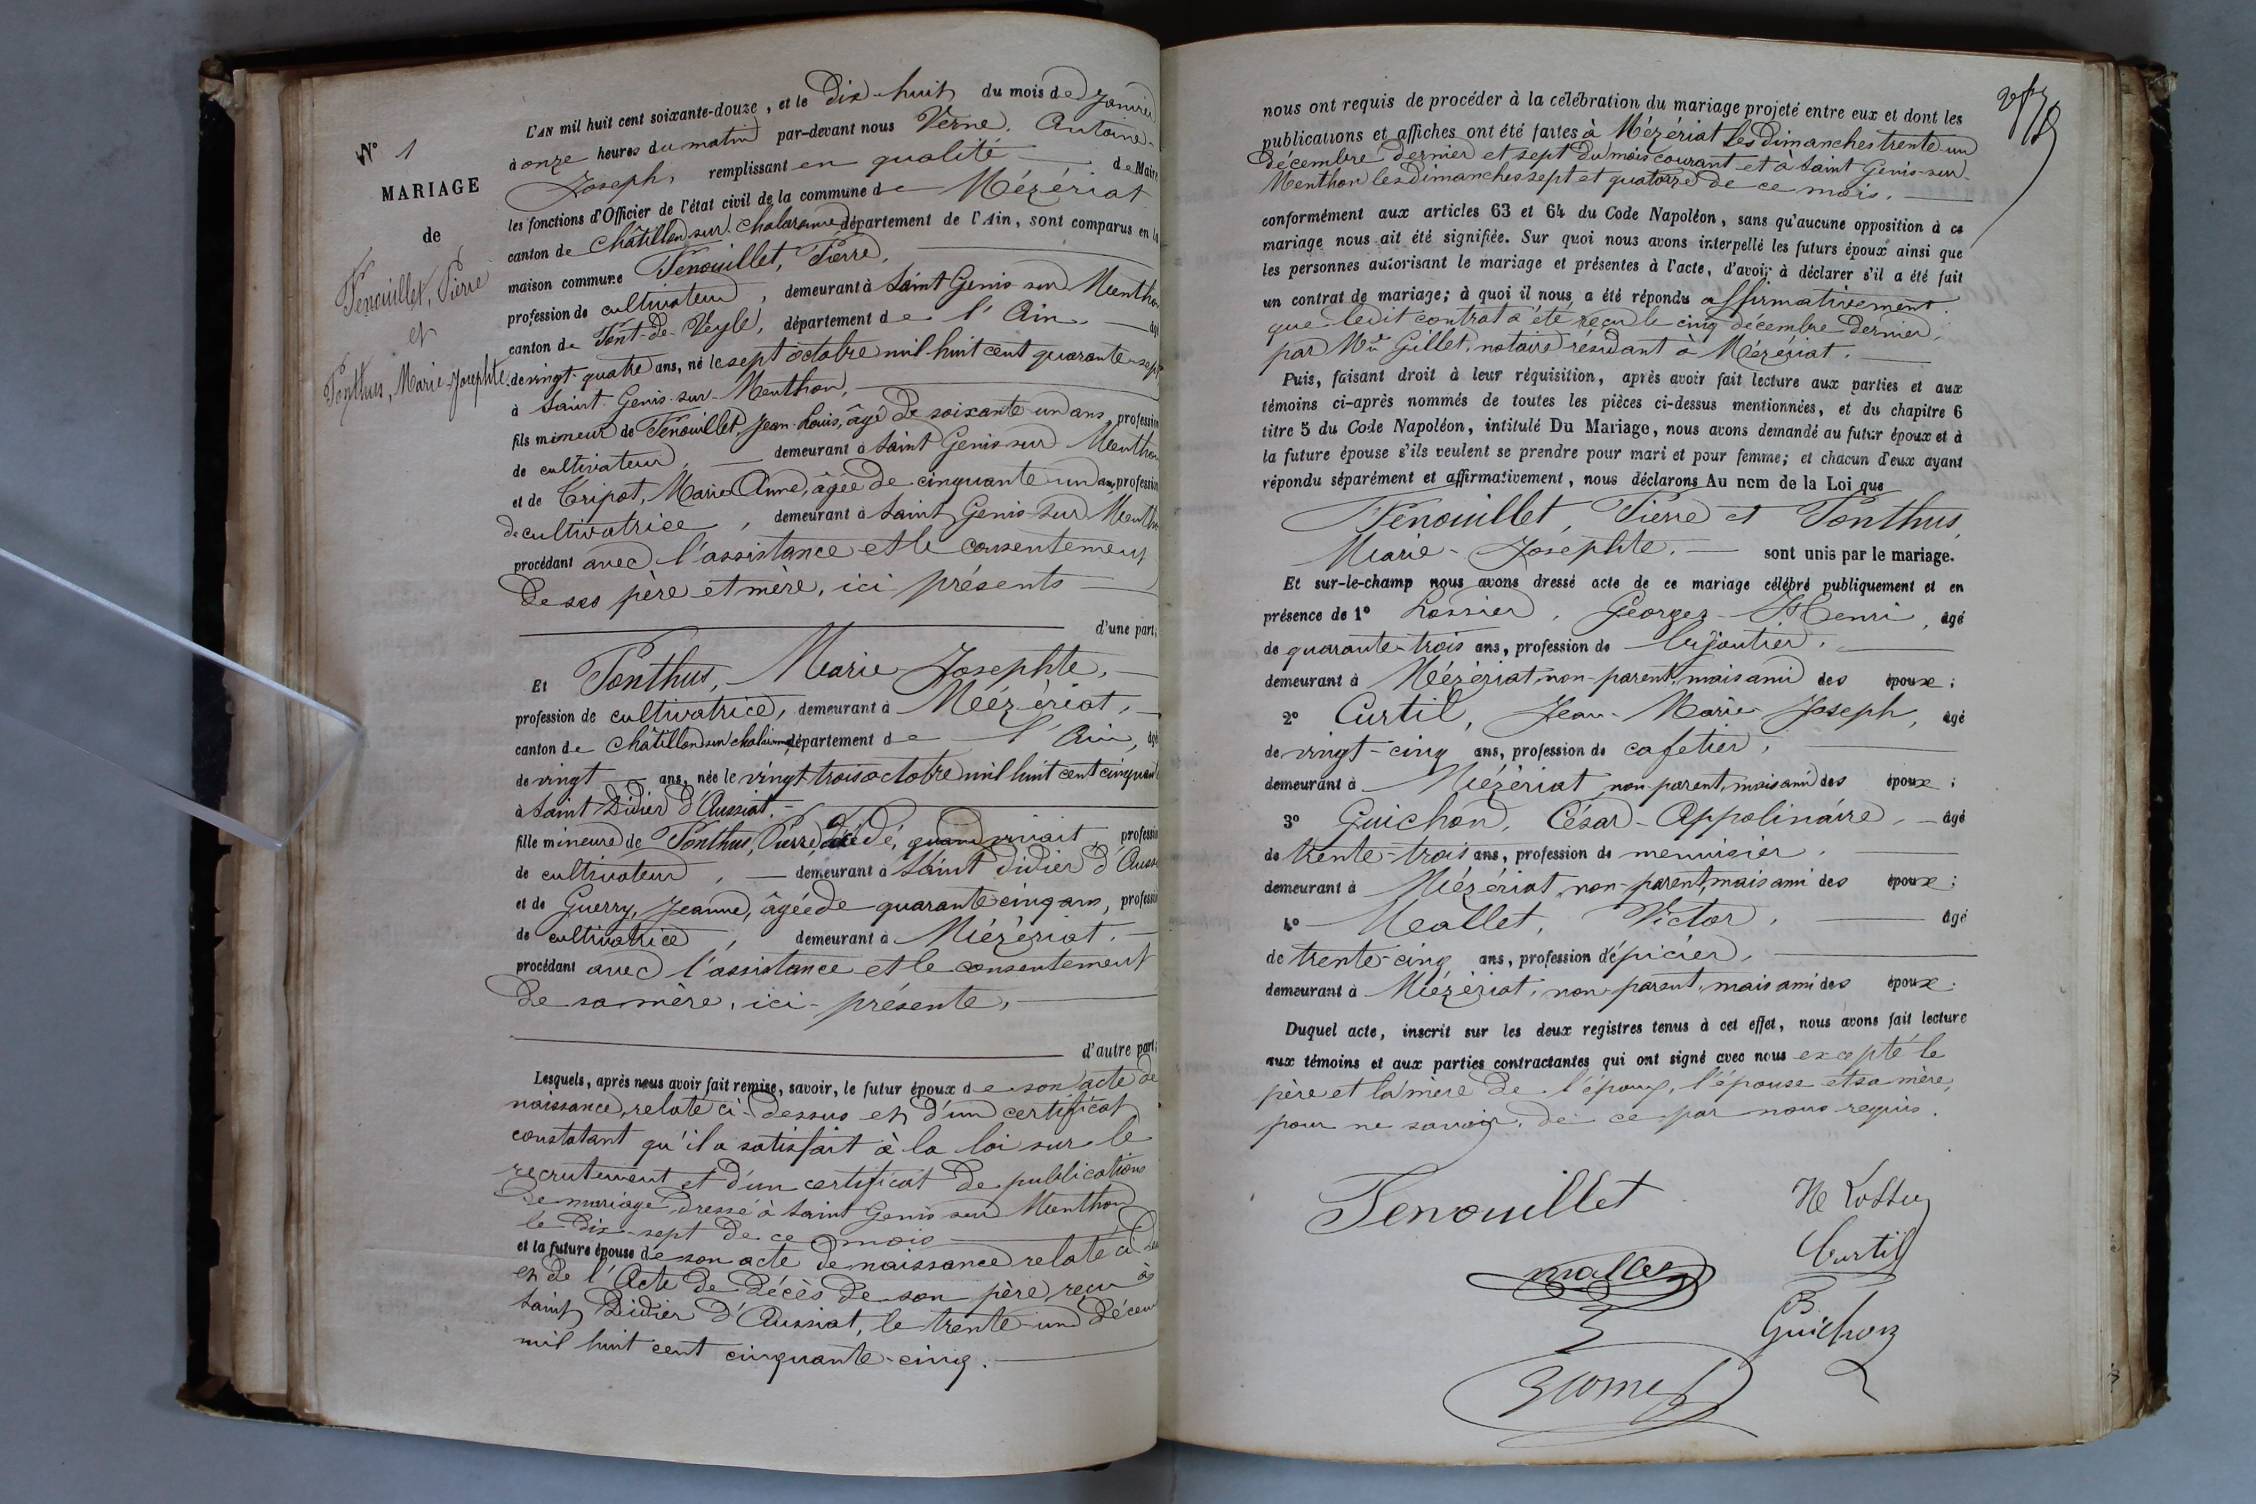 N° 1
MARIAGE
de
Fenouillet, Pierre
et
Ponthus, Marie-Josephte.
L'AN mil huit cent soixante-douze, et le Dix-huit du mois de Janvier
à onze heures du matin par-devant nous Verne, Antoine-
Joseph, remplissant en qualité de Maire
les fonctions d'Officier de l'état civil de la commune de Mézériat
canton de Châtillon sur Chalaronne département de l'Ain, sont comparus en la
maison commune Fenouillet, Pierre,
profession de cultivateur, demeurant à Saint Genis sur Menthon
canton de Pont-de-Veyle, département de l'Ain âgé
de vingt-quatre ans, né le sept octobre mil huit cent quarante-sept
à Saint-Genis-sur-Menthon,
fils mineur de Fenouillet, Jean-Louis, âgé de soixante un ans, profession
de cultivateur, demeurant à Saint Genis sur Menthon
et de Tripot, Marie Anne, âgée de cinquante un ans, profession
de cultivatrice, demeurant à Saint Genis-sur Menthon
procédant avec l'assistance et le consentement
de ses père et mère, ici présents
d'une part;
Et Ponthus, Marie-Josephte,
profession de cultivatrice, demeurant à Mézériat,
canton de Châtillon sur chalaronne département de l'Ain, âgé
de vingt ans, née le vingt-trois octobre mil huit cent cinquante
à Saint Didier d'Aussiat,
fille mineure de Ponthus, Pierre, décédé, quand vivait, profession
de cultivateur, demeurant à Saint Didier d'Aussi
et de Guerry, Jeanne, âgée de quarante cinq ans, profession
de cultivatrice, demeurant à Mézériat.
procédant avec l'assistance et le consentement
de sa mère, ici-présente,
d'autre part;
Lesquels, après nous avoir fait remise, savoir, le futur époux de son acte de
naissance, relaté ci-dessus et d'un certificat
constatant qu'il a satisfait à la loi sur le
recrutement et d'un certificat de publications
de mariage dressé à Saint Genis sur Menthon
le dix-sept de ce mois
et la future épouse de son acte de naissance relaté ci
et de l'Acte de décès de son père, reçu à
Saint Didier d'Aussiat, le trente-un Décem
mil huit cent cinquante-cinq.
nous ont requis de procéder à la célébration du mariage projeté entre eux et dont les
publications et affiches ont été faites à Mézériat les dimanches trente-un
décembre dernier et sept du mois courant et à Saint Genis-sur-
Menthon les dimanches sept et quatorze de ce mois.
conformément aux articles 63 et 64 du Code Napoléon, sans qu'aucune opposition à ce
mariage nous ait été signifiée. Sur quoi nous avons interpellé les futurs époux ainsi que
les personnes autorisant le mariage et présentes à l'acte, d'avoir à déclarer s'il a été fait
un contrat de mariage; à quoi il nous a été répondu affirmativement.
que ledit contrat a été reçu le cinq décembre dernier,
par Me Gillet, notaire résidant à Mézériat.
Puis, faisant droit à leur réquisition, après avoir fait lecture aux parties et aux
témoins ci-après nommés de toutes les pièces ci-dessus mentionnées, et du chapitre 6
titre 5 du Code Napoléon, intitulé Du Mariage, nous avons demandé au futur époux et à
la future épouse s'ils veulent se prendre pour mari et pour femme; et chacun d'eux ayant
répondu séparément et affirmativement, nous déclarons Au nom de la Loi que
Fenouillet, Pierre et Ponthus,
Marie-Josephte. sont unis par le mariage.
Et sur-le-champ nous avons dressé acte de ce mariage célébré publiquement et en
présence de 1° Lossier, Georges-Henri, âgé
de quarante-trois ans, profession de bijoutier,
demeurant à Mézériat, non-parent, mais ami des époux;
2° Curtil, Jean-Marie-Joseph, âgé
de vingt-cinq ans, profession de cafetier,
demeurant à Mézériat, non-parent, mais ami des époux;
3° Guichon, César-Appolinaire, âgé
de trente-trois ans, profession de menuisier,
demeurant à Mézériat, non-parent, mais ami des époux;
4° Mallet, Victor, âgé
de trente-cinq ans, profession d'épicier,
demeurant à Mézériat, non-parent, mais ami des époux.
Duquel acte, inscrit sur les deux registres tenus à cet effet, nous avons fait lecture
aux témoins et aux parties contractantes qui ont signé avec nous excepté le
père et la mère de l'époux, l'épouse et sa mère,
pour ne savoir, de ce par nous requis.
Fenouillet
Curtil
Mallet
Guichon